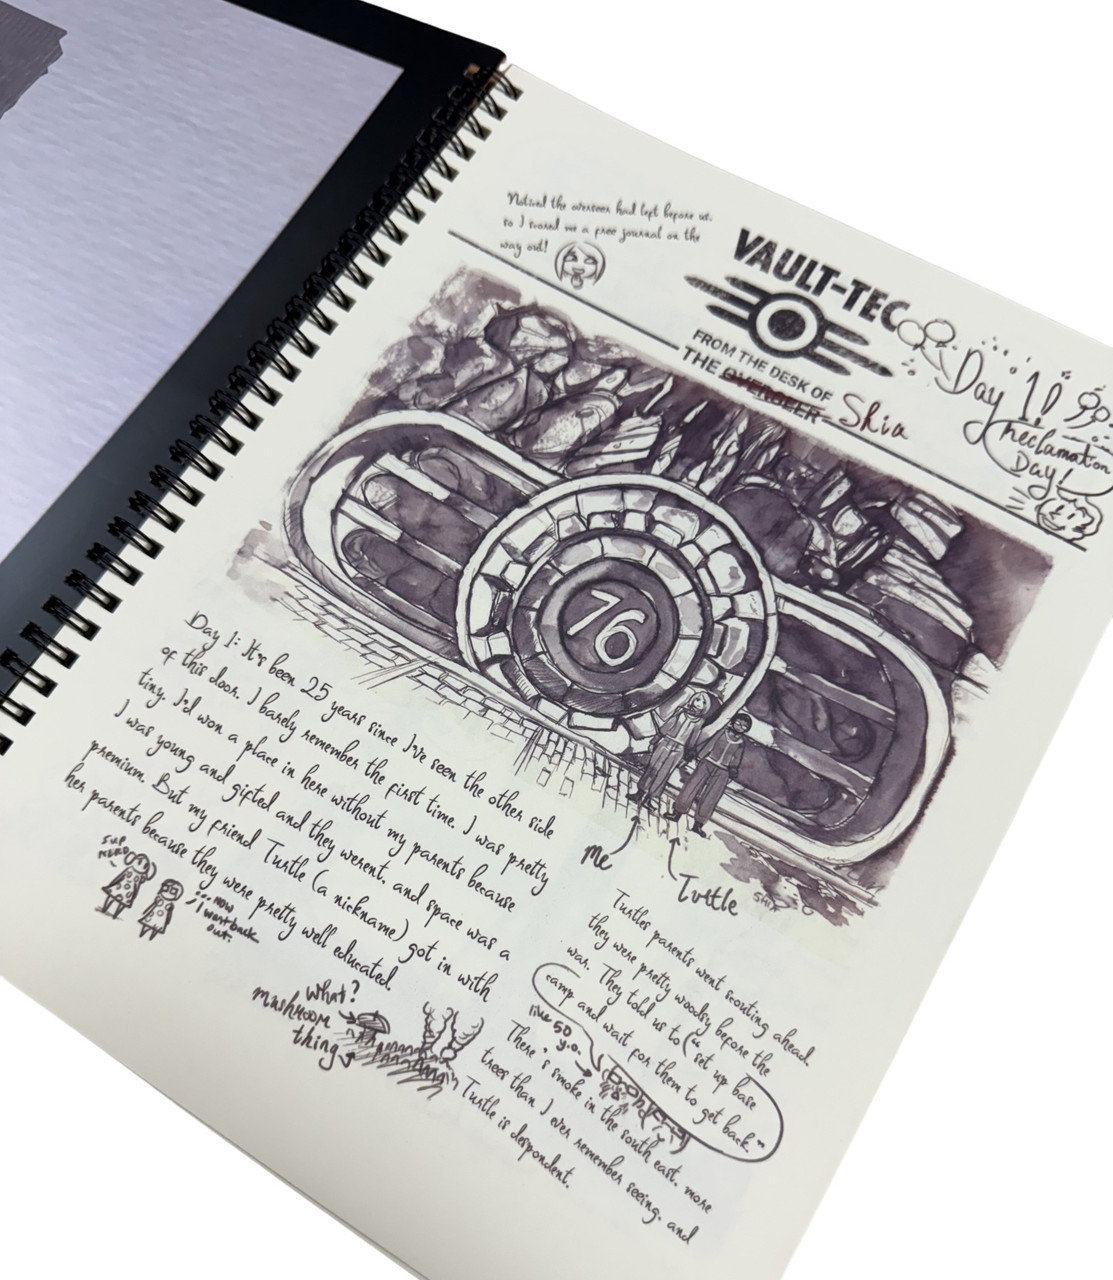 Noticed the overseer had left before us.
so I scored me a free journal on the
way out!
VAULT-TEC
FROM THE DESK OF
THE OVERSEER Shia
Day "1!"
reclamation
Day!
76
Me
Turtle
Day 1: It's been 25 years since I've seen the other side
of this door. I barely remember the first time. I was pretty
tiny. I'd won a place in here without my parents because
I was young and gifted and they werent. and space was a
premium. But my friend Turtle (a nickname) got in with
her parents because they were pretty well educated.
sup
NERD
...now
I want back
out.
what?
mushroom
thing
Turtles parents went scouting ahead.
they were pretty woodsy before the
war. They told us to ("set up base
camp and wait for them to get back."
like 50
y.o.
There's smoke in the south east. more
trees than I ever remember seeing. and
Turtle is despondent.